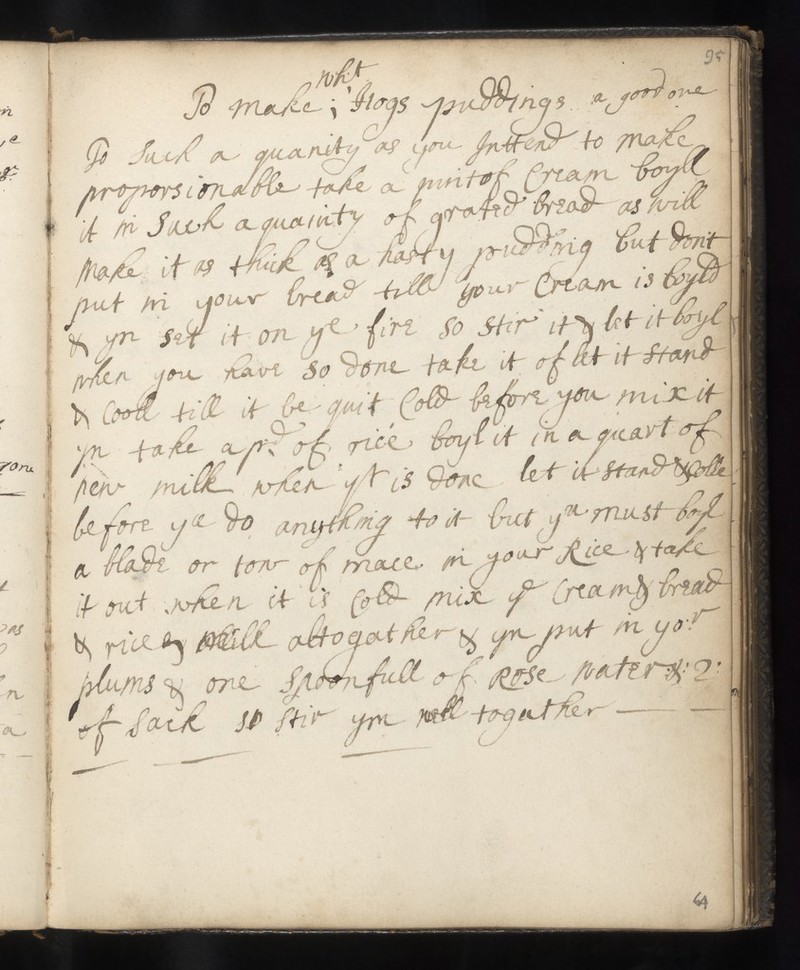 95
whit
To make ; Hogs puddings a good one
To Such a quanity as you Inttend to make
proporsionable take a pint of Cream boyll
it in Such a quainty of grated bread as will
make it as thick as a hasty pudding but dont
put in your bread till your Cream is boyld
& yn set it on ye fire so stir it & let it boyl
when you have so done take it of let it stand
& Cooll till it be quit Cold before you mix it
yn take a pd of rice boyl it in a quart of
new milk when yt is done let it stand & Colle
before ye do anything to it but yu must boyl
a blade or tow of mace in your Rice & take
it out when it is Cold mix ye Cream & bread
& rice & milk altogather & yn put in yor
plums & one spoonfull of Rose water & 2:
of Sack so stir ym well togather
64